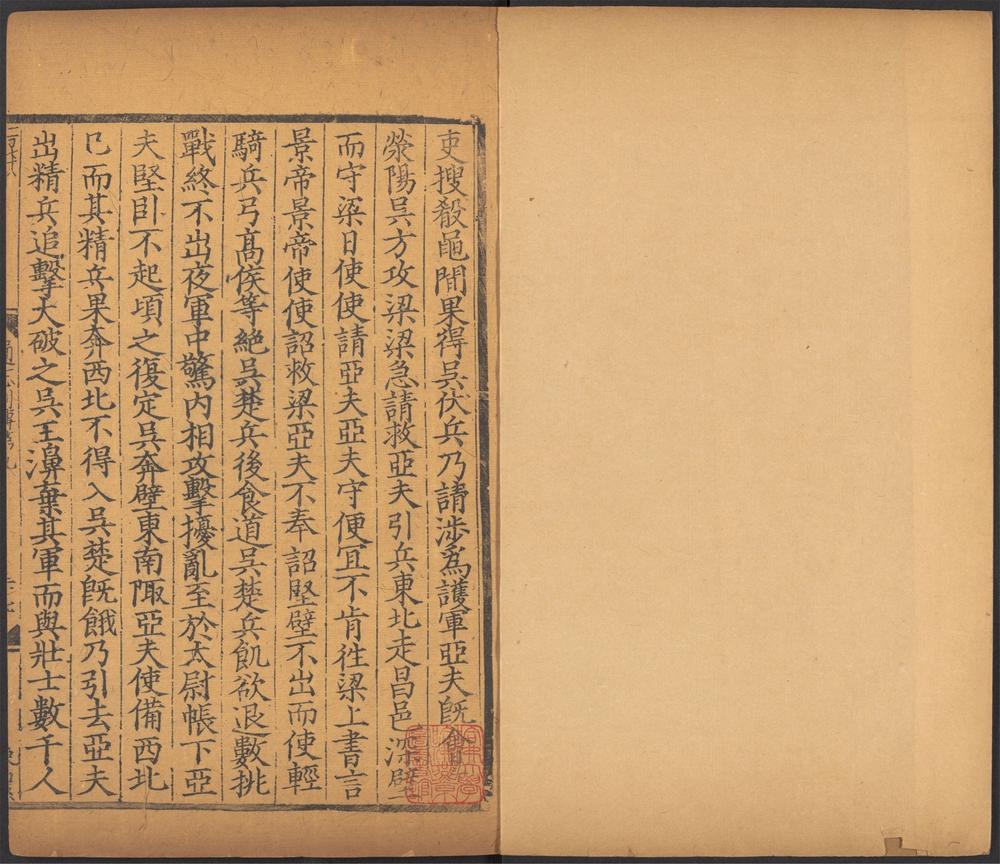 吏搜殽黽間果得吳伏兵乃請涉為護軍亞夫旣會
滎陽吳方攻梁梁急請救亞夫引兵東北走昌邑深壁
而守梁日使使請亞夫亞夫守便冝不肯徃梁上書言
景帝景帝使使詔救梁亞夫不奉詔堅壁不出而使輕
騎兵弓髙侯等絶吳楚兵後食道吳楚兵飢欲退數挑
戰終不出夜軍中驚内相攻擊擾亂至於太尉帳下亞
夫堅卧不起頃之復定吳奔壁東南陬亞夫使備西北
已而其精兵果奔西北不得入吳楚旣餓乃引去亞夫
出精兵追擊大破之吳王濞棄其軍而與壯士數千人